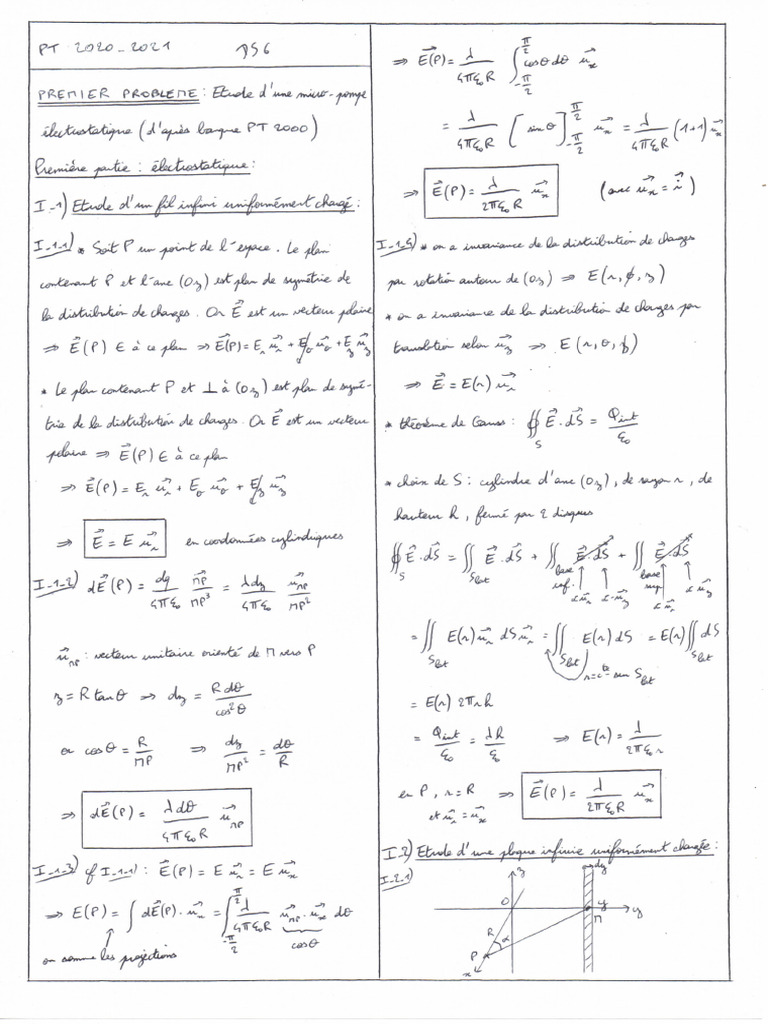 PT 2020-2021 DS6
PREMIER PROBLEME : Etude d'une micro-pompe
électrostatique (d'après banque PT 2000)
Première partie : électrostatique :
I-1) Etude d'un fil infini uniformément chargé :
I-1-1) * Soit P un point de l'espace. Le plan
contenant P et l'axe (Oz) est plan de symétrie de
la distribution de charges. Or E⃗ est un vecteur polaire
⇒ E⃗(P) ∈ à ce plan ⇒ E⃗(P) = E_r u⃗_r + E_θ u⃗_θ + E_z u⃗_z
* Le plan contenant P et ⊥ à (Oz) est plan de symé-
trie de la distribution de charges. Or E⃗ est un vecteur
polaire ⇒ E⃗(P) ∈ à ce plan
⇒ E⃗(P) = E_r u⃗_r + E_θ u⃗_θ + E_z u⃗_z
⇒ E⃗ = E u⃗_r en coordonnées cylindriques
I-1-2) dE⃗(P) = dq/(4πε₀) MP⃗/MP³ = λdz/(4πε₀) u⃗_MP/MP²
u⃗_MP : vecteur unitaire orienté de M vers P
z = R tanθ ⇒ dz = R dθ/cos²θ
or cosθ = R/MP ⇒ dz/MP² = dθ/R
⇒ dE⃗(P) = λdθ/(4πε₀R) u⃗_MP
I-1-3) cf I-1-1) : E⃗(P) = E u⃗_r = E u⃗_x
⇒ E(P) = ∫ dE⃗(P) · u⃗_x = ∫_{-π/2}^{π/2} λ/(4πε₀R) u⃗_MP · u⃗_x dθ
cosθ
on somme les projections
⇒ E⃗(P) = λ/(4πε₀R) ∫_{-π/2}^{π/2} cosθ dθ u⃗_x
= λ/(4πε₀R) [sinθ]_{-π/2}^{π/2} u⃗_x = λ/(4πε₀R) (1+1) u⃗_x
⇒ E⃗(P) = λ/(2πε₀R) u⃗_x (avec u⃗_x = i⃗)
* on a invariance de la distribution de charges
par rotation autour de (Oz) ⇒ E(r, θ, z)
* on a invariance de la distribution de charges par
translation selon u⃗_z ⇒ E(r, θ, z)
⇒ E⃗ = E(r) u⃗_r
* théorème de Gauss : ∯_S E⃗ · dS⃗ = Q_int/ε₀
* choix de S : cylindre d'axe (Oz), de rayon r, de
hauteur h, fermé par 2 disques
∯_S E⃗ · dS⃗ = ∬_{S_lat} E⃗ · dS⃗ + ∬_{base inf.} E⃗ · dS⃗ + ∬_{base sup.} E⃗ · dS⃗
α u⃗_r α -u⃗_z α u⃗_r α u⃗_z
= ∬_{S_lat} E(r) u⃗_r dS u⃗_r = ∬_{S_lat} E(r) dS = E(r) ∬_{S_lat} dS
r = c^te sur S_lat
= E(r) 2πrh
= Q_int/ε₀ = λh/ε₀ ⇒ E(r) = λ/(2πε₀r)
en P, r = R ⇒ E⃗(P) = λ/(2πε₀R) u⃗_x
et u⃗_r = u⃗_x
I.2) Etude d'une plaque infinie uniformément chargée :
I-2-1)
z
dy
O
y
M
y
R
α
P
x